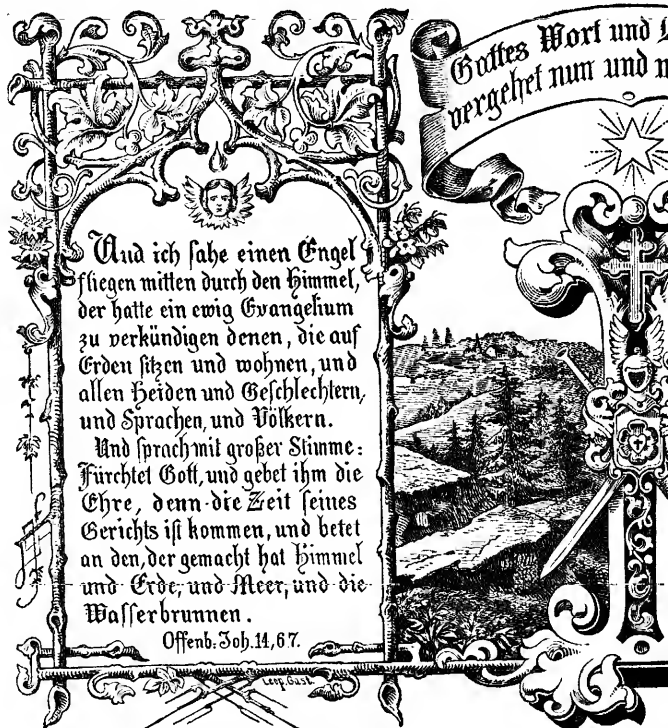 Und ich sahe einen Engel
fliegen mitten durch den Himmel,
der hatte ein ewig Evangelium
zu verkündigen denen, die auf
Erden sitzen und wohnen, und
allen Heiden und Geschlechtern,
und Sprachen, und Völkern.
Und sprach mit großer Stimme:
Fürchtet Gott, und gebet ihm die
Ehre, denn die Zeit seines
Gerichts ist kommen, und betet
an den, der gemacht hat Himmel
und Erde, und Meer, und die
Wasserbrunnen.
Offenb. Joh. 14, 6 7.
Leop. Gust.
Gottes Wort und
vergehet nun und